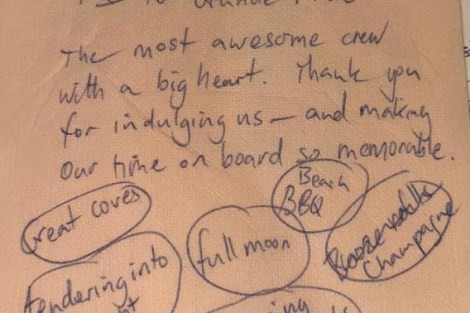 The most awesome crew
with a big heart. Thank you
for indulging us – and making
our time on board so memorable.
Beach
BBQ
Great coves
full moon
Champagne
tendering into